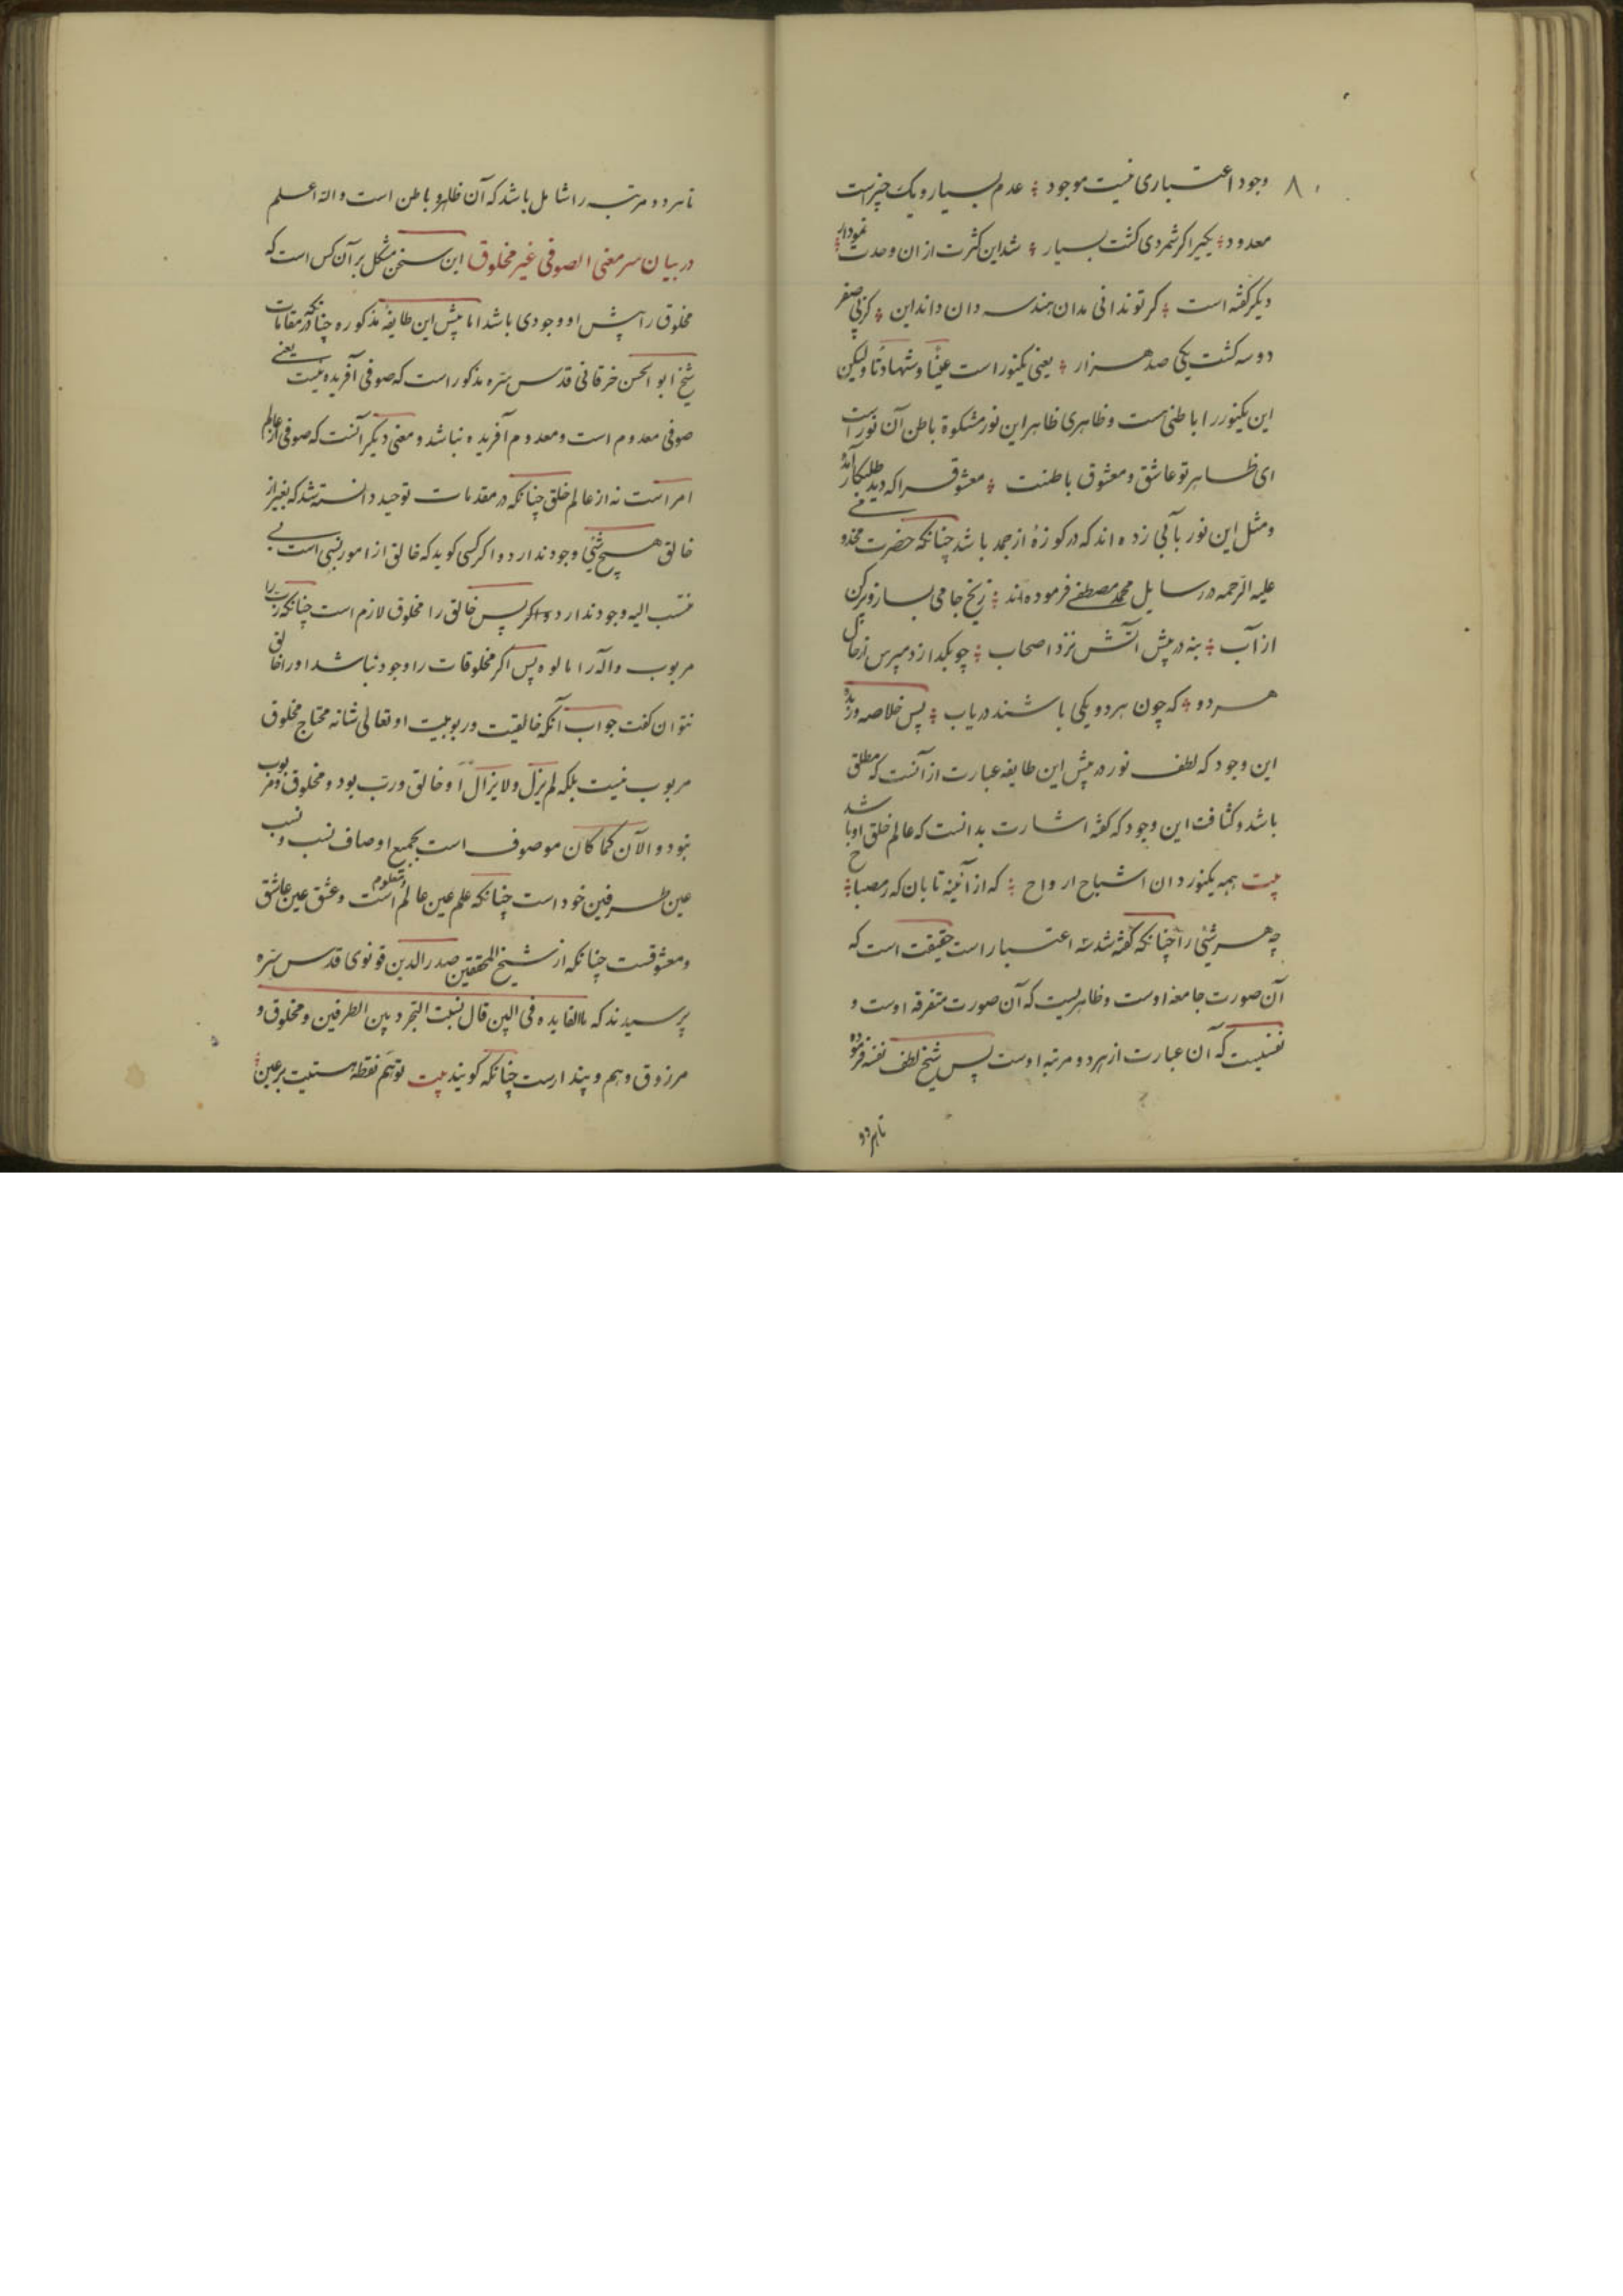 ۸
وجود اعتباری نیست موجود ؞ عدم بسیار و یک چیز است
معدود ؞ یکیرا کر شمردی کشت بسیار ؞ شد این کثرت از ان وحدت نمودار ؞
دیکر کفته است ؞ کر تو ندانی مدان هندسه دان داند این ؞ کز پی صفر
دو سه کشت یکی صد هزار ؞ یعنی یکنور است عینًا و شهادتًا و لیکن
این یکنور را باطنی است و ظاهری ظاهر این نور مشکوة باطن آن نور است
ای ظاهر تو عاشق و معشوق باطنت ؞ معشوق را که دید طلبکار آمده
و مثل این نور بآبی زده اند که در کوزهٔ از جمد باشد چنانکه حضرت مخدومی
علیه الرّحمه در رسایل محمد مصطفی فرموده اند ؞ زیخ جامی بساز و پر کن
از آب ؞ بنه در پیش آتش نزد اصحاب ؞ چو بکدازد مپرس از حال
هر دو ؞ که چون هر دو یکی باشند دریاب ؞ پس خلاصه و زبدهٔ
این وجود که لطف نور در پیش این طایفه عبارت از آنست که مطلق
باشد و کثافت این وجود که کفته اشارت بدانست که عالم خلق او باشد
بیت همه یکنور دان اشباح ارواح ؞ که از آئینه تابان که ز مصباح ؞
چه هر شئی را چنانکه کفته شد سه اعتبار است حقیقت است که
آن صورت جامعهٔ اوست و ظاهریست که آن صورت متفرقه اوست و
نفسیست که آن عبارت از هر دو مرتبه اوست پس شیخ لطف نفسه فرموده
تا هر دو
تا هر دو مرتبه را شامل باشد که آن ظاهر و باطن است والله اعلم
در بیان سر معنی الصوفی غیر مخلوق این سخن مشکل بر آن کس است که
مخلوق را پیش او وجودی باشد اما پیش این طایفهٔ مذکوره چنانکه در مقامات
شیخ ابو الحسن خرقانی قدس سرّه مذکور است که صوفی آفریده نیست یعنی
صوفی معدوم است و معدوم آفریده نباشد و معنی دیکر آنست که صوفی از عالم
امر است نه از عالم خلق چنانکه در مقدمات توحید دانسته شد که بغیر از
خالق هیچ شیئی وجود ندارد و اکر کسی کوید که خالق از امور نسبی است بی
منتسب الیه وجود ندارد پس خالق را مخلوق لازم است چنانکه رب را
مربوب و اله را مالوه پس اکر مخلوقات را وجود نباشد او را خالق
نتوان کفت جواب آنکه خالقیت و ربوبیت او تعالی شانه محتاج مخلوق
مربوب نیست بلکه لم یزل و لا یزال او خالق و رب بود و مخلوق و مربوب
نبود و الآن کما کان موصوف است بجمیع اوصاف نسب و نسب
عین طرفین خود است چنانکه علم عین عالم و معلوم است و عشق عین عاشق
و معشوقست چنانکه از شیخ المحققین صدر الدین قونوی قدس سرّه
پرسیدند که ما الفایده فی البین قال نسبت التجرد بین الطرفین و مخلوق و
مرزوق وهم و پندارست چنانکه کویند بیت توهّم نقطهٔ هستیت بر عین ؞